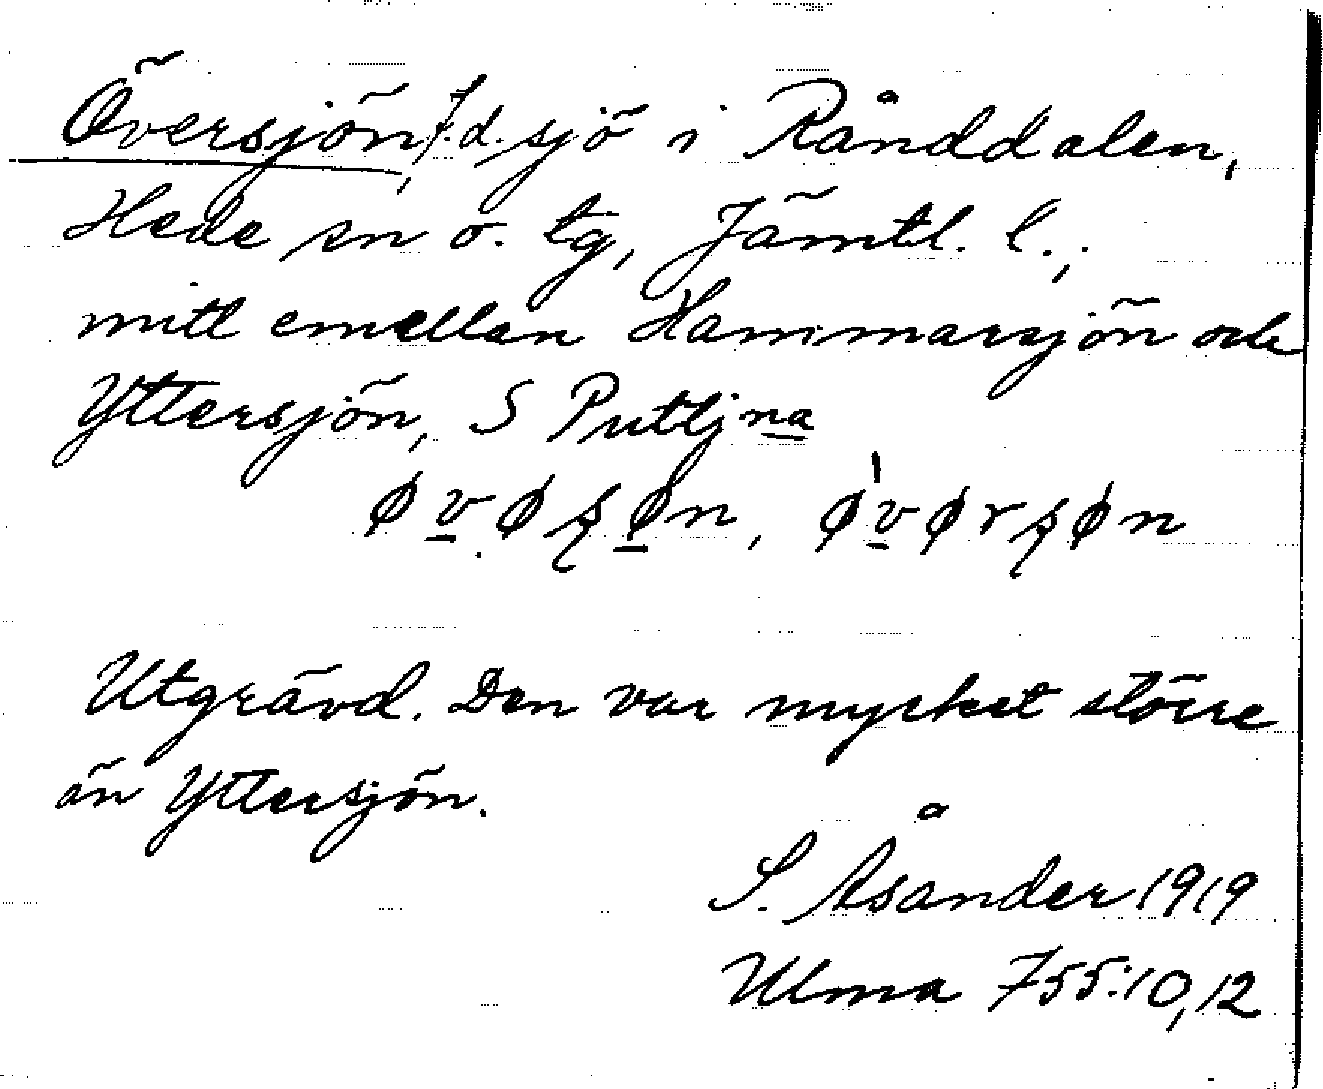 Översjön, f.d. sjö i Rånddalen,
Hede sn o. tg, Jämtl. l.,
mitt emellan Hammarsjön och
Yttersjön, S Puttjna
øvøʂøn, ø'vørʂøn
Utgrävd. Den var mycket större
än Yttersjön.
S. Åsander 1919
Ulma 755:10,12